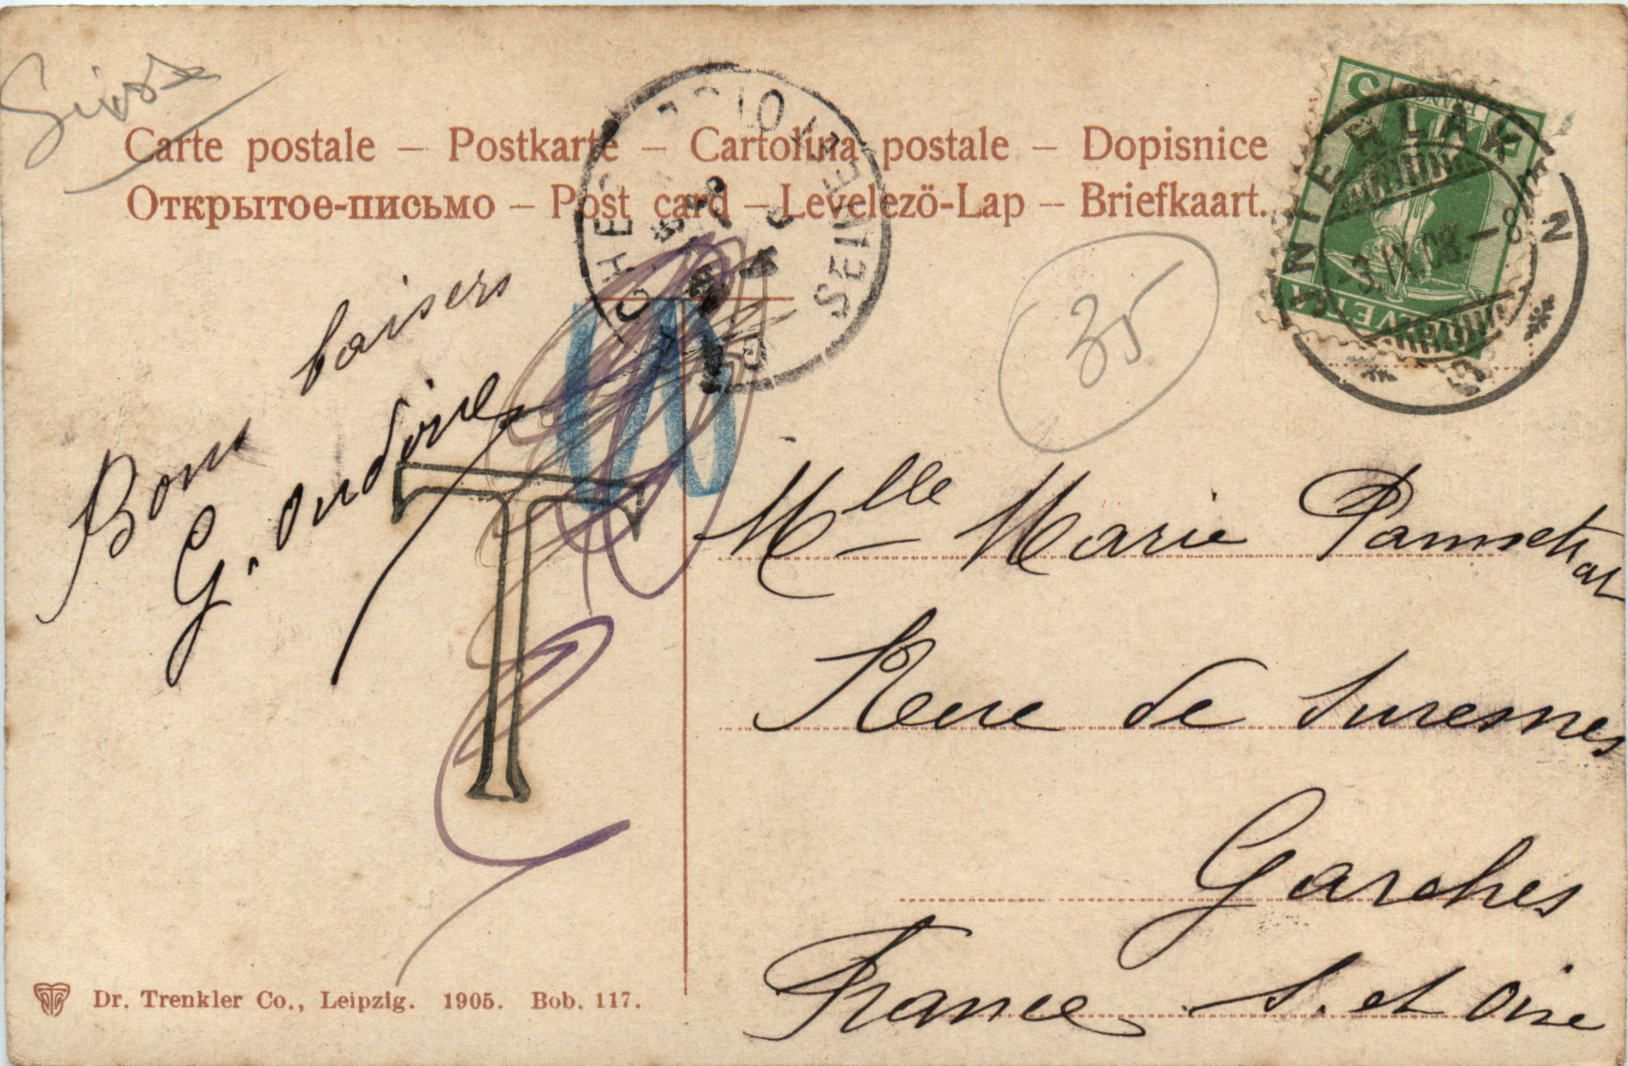 Suisse
Carte postale – Postkarte – Cartolina postale – Dopisnice
Открытое-письмо – Post card – Levelezö-Lap – Briefkaart.
INTERLAKEN
3.IX.08.–8
GARCHES
SEINE
35
Bons baisers
G.
T
10
Mlle Marie
Rue de Suresnes
Garches
France S. et Oise
Dr. Trenkler Co., Leipzig. 1905. Bob. 117.